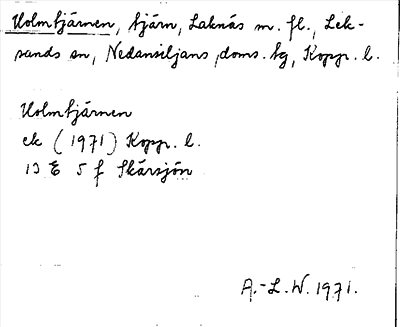 Holmtjärnen, tjärn, Laknäs m. fl., Lek-
sands sn, Nedansiljans doms. tg, Kopp. l.
Holmtjärnen
ek (1971) Kopp. l.
13 E 5 f Skärsjön
A.-L.W. 1971.